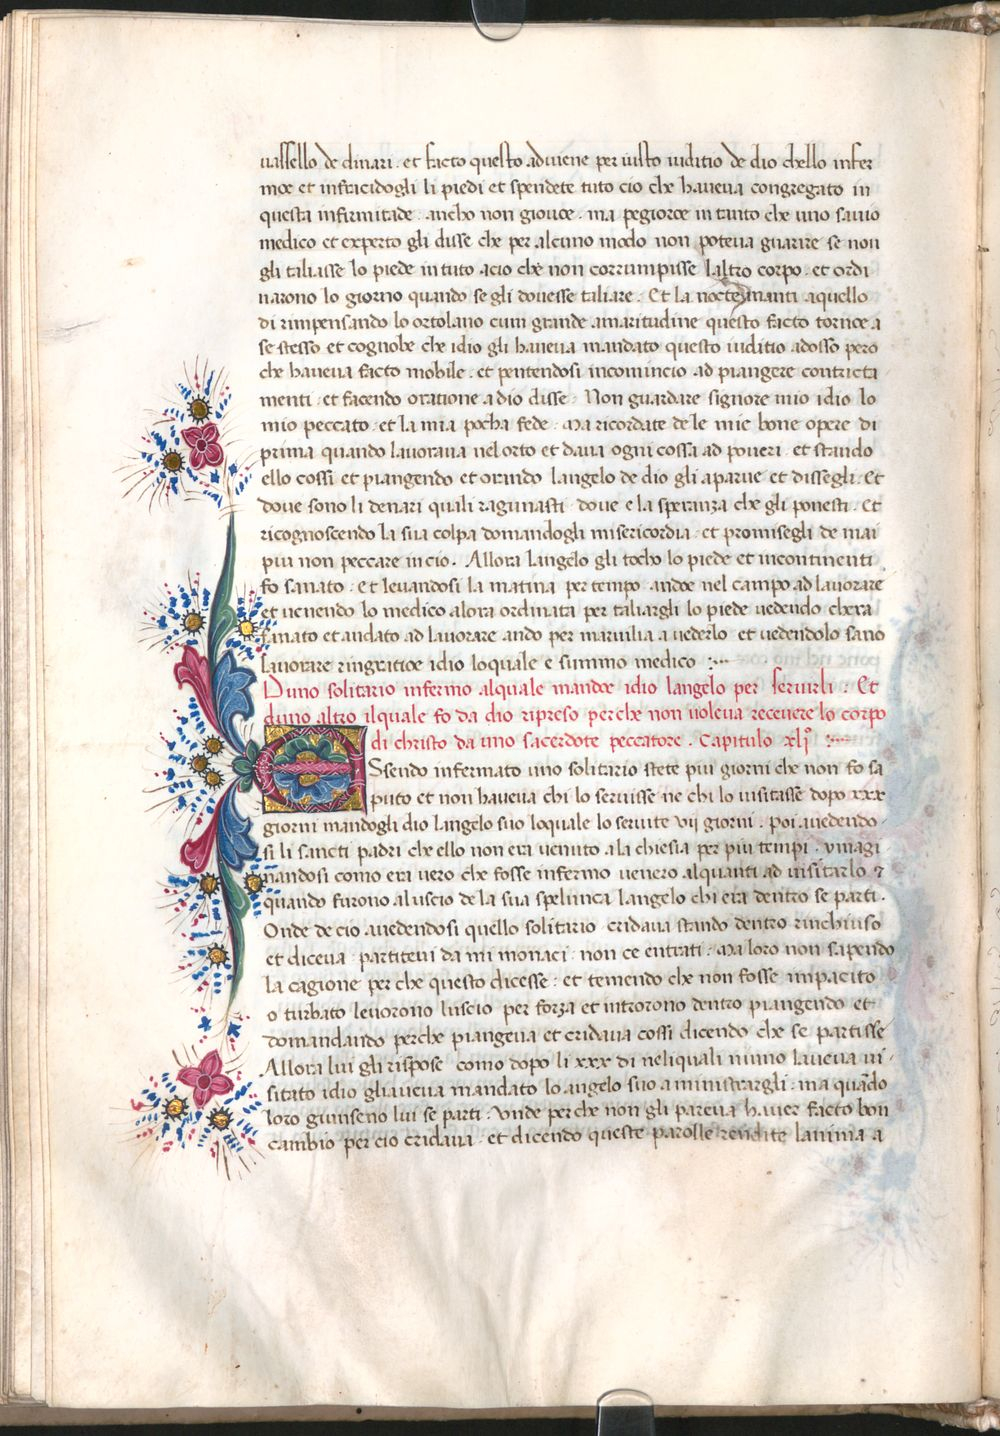 uassello de dinari · et facto questo adviene per iusto iuditio de dio chello infer
moe et infracidogli li piedi et spendete tuto cio che haueua congregato in
questa infirmitade · ancho non giouoe · ma pegioroe in tanto che uno sauio
medico et experto gli disse che per alcuno modo non poteua guarire se non
gli taliasse lo piede in tuto acio che non corrumpisse laltro corpo · et ordi
narono lo giorno quando se gli douesse taliare · Et la nocte inanti aquello
di rimpensando lo ortolano cum grande amaritudine questo facto tornoe a
se stesso et cognobe che idio gli haueua mandato questo iuditio adosso pero
che haueua facto mobile · et pentendosi incomincio ad piangere contricta
menti · et facendo oratione a dio disse · Non guardare signore mio idio lo
mio peccato · et la mia pocha fede · Ma ricordate de le mie bone opere di
prima quando lauoraua nel orto et daua ogni cossa ad poueri · et stando
ello cossi et piangendo et orando langelo de dio gli aparue et dissegli · Et
doue sono li denari quali ragunasti · doue e la speranza che gli ponesti · Et
ricognoscendo la sua colpa domandogli misericordia · et promisegli de mai
piu non peccare in cio · Allora langelo gli tocho lo piede et incontinenti
fo sanato · et leuandosi la matina per tempo andoe nel campo ad lauorare
et uenendo lo medico alora ordinata per taliargli lo piede uedendo chera
sanato et andato ad lauorare ando per marauilia a uederlo et uedendolo sano
lauorare ringratioe idio loquale e summo medico :~
Duno solitario infermo alquale mandoe idio langelo per seruirli · Et
duno altro ilquale fo da dio ripreso perche non uoleua receuere lo corpo
di christo da uno sacerdote peccatore · Capitulo xlj°
ESsendo infermato uno solitario stete piu giorni che non fo sa
puto et non haueua chi lo seruisse ne chi lo uisitasse dopo xxx
giorni mandogli dio langelo suo loquale lo seruite vij giorni · Poi auedendo
si li sancti padri che ello non era uenuto a la chiesia per piu tempi · ymagi
nandosi como era uero che fosse infermo uenero alquanti ad uisitarlo ⁊
quando furono al uscio de la sua spelunca langelo chi era dentro se parti ·
Onde de cio auedendosi quello solitario cridaua stando dentro rinchiuso
et diceua · partiteui da mi monaci · non ce entrati · Ma loro non sapendo
la cagione per che questo dicesse · et temendo che non fosse impacito
o turbato leuorono luscio per forza et introrono dentro piangendo et
domandando perche piangeua et cridaua cossi dicendo che se partisse
Allora lui gli rispose como dopo li xxx di neliquali niuno laueua ui
sitato idio gliaueua mandato lo angelo suo a ministrargli · ma quãdo
loro giunseno lui se parti · Vnde perche non gli pareua hauer facto bon
cambio per cio cridaua · et dicendo queste parolle rendite lanima a